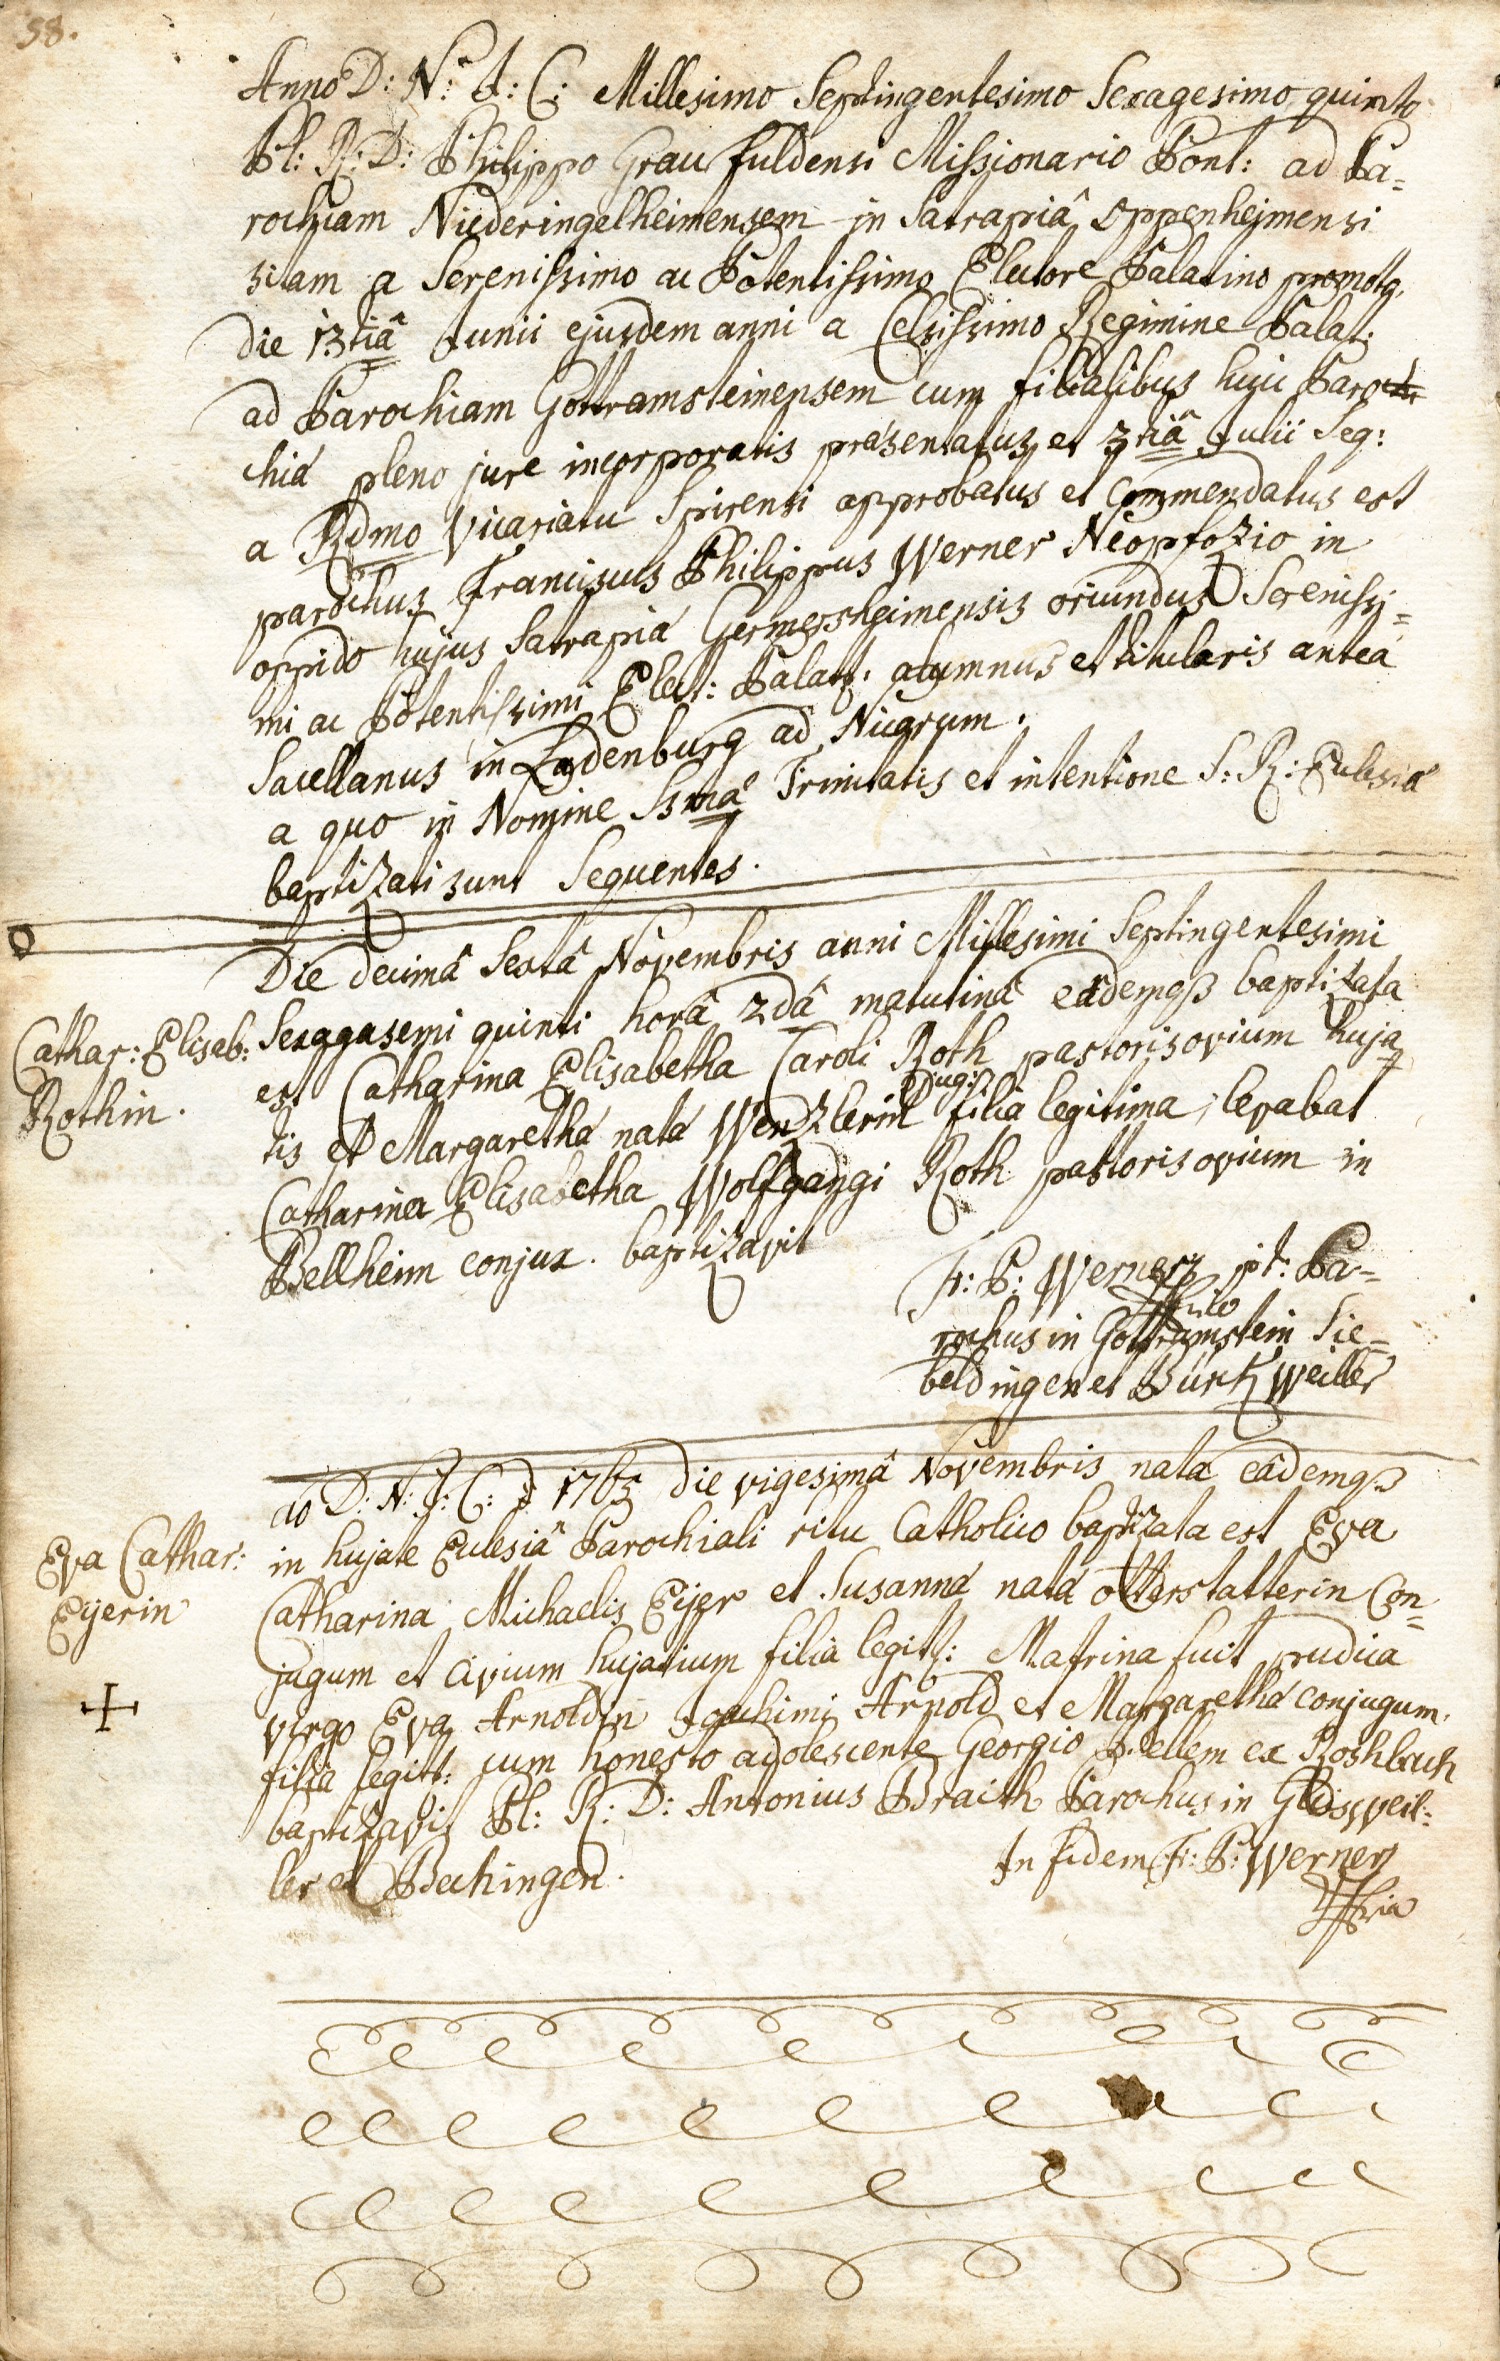 58.
Anno D: N: J: C: Millesimo Septingentesimo Sexagesimo quinto
Pl: R: D: Philippo Grau fuldensi Missionario Pont: ad Pa=
rochiam Niederingelheimensem in Satrapiâ Oppenheimensi
sitam a Serenissimo ac Potentissimo Electore Palatino promoto,
die 13tiâ Junii ejusdem anni a Celsissimo Regimine Palat:
ad Parochiam Gottramsteinensem cum filialibus huic Paro
chiæ pleno jure incorporatis præsentatus et 3tiâ Julii Seq:
a Rdmo Vicariatu Spirensi approbatus et commendatus est
parochus Franciscus Philippus Werner Neopfozio in
oppido hujus Satrapiæ Germersheimensis oriundus Serenissi=
mi ac Potentissimi Elect: Palat: alumnus et titularis antea
Sacellanus in Ladenburg ad Nicrum.
a quo in Nomine SSmæ Trinitatis et intentione S: R: Ecclesiæ
baptizati sunt Sequentes.
Die decimâ Sextâ Novembris anni Millesimi Septingentesimi
Cathar: Elisab:
Rothin.
Sexagasemi quinti horâ 2dâ matutinâ eâdemqß baptizata
est Catharina Elisabetha Caroli Roth pastoris ovium huja
tis et Margarethæ natæ Wenzlerin Conjug: filia legitima, levabat
Catharina Elisabetha Wolfgangi Roth pastoris ovium in
Bellheim conjux. baptizavit
Fr: P: Werner pt: Pa=
rochus in Gottramstein Sie=
beldingen et Burkweiller
ao D: N: J: C: 1765 die vigesimâ Novembris nata eâdemqß
Eva Cathar:
Eyerin
in hujate Ecclesiâ Parochiali ritu Catholico baptizata est Eva
Catharina Michaelis Eijer et Susannæ natæ otterstatterin Con=
jugum et civium hujatium filia legitt: Matrina fuit pudica
virgo Eva Arnoldin Joachimi Arnold et Margarethæ conjugum
filia legitt: cum honesto adolescente Georgio ex Roshbach
baptizavit Pl: R: D: Antonius Braith Parochus in Gleisweil=
ler et Bechingen.
In fidem Fr: P: Werner